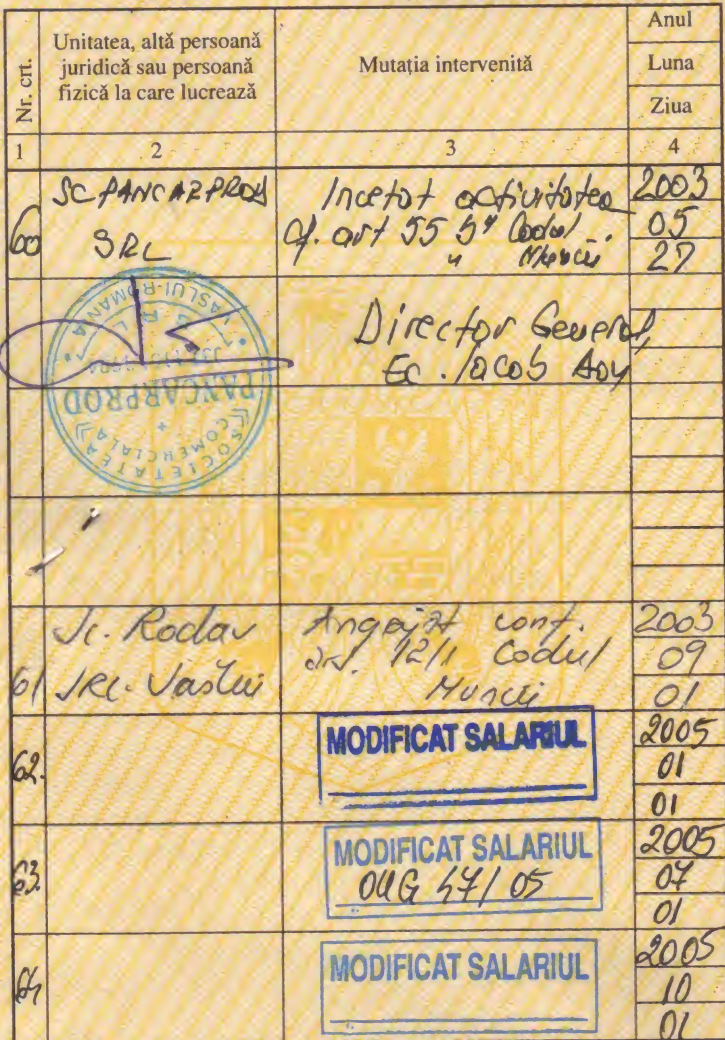 Nr. crt.
Unitatea, altă persoană
juridică sau persoană
fizică la care lucrează
Mutația intervenită
Anul
Luna
Ziua
1 2 3 4
60 SC PANCARPROD
SRL
Incetat activitatea
cf. art 55 "b" Codul
Muncii
2003
05
27
SOCIETATEA COMERCIALA
PANCARPROD
S.R.L.
VASLUI-ROMANIA
Director General,
Ec. Iacob
61 Sc. Rodav
SRL. Vaslui
Angajat conf.
art. 12/1 Codul
Muncii
2003
09
01
62.
MODIFICAT SALARIUL
2005
01
01
63.
MODIFICAT SALARIUL
OUG 47/05
2005
07
01
64
MODIFICAT SALARIUL
2005
10
01